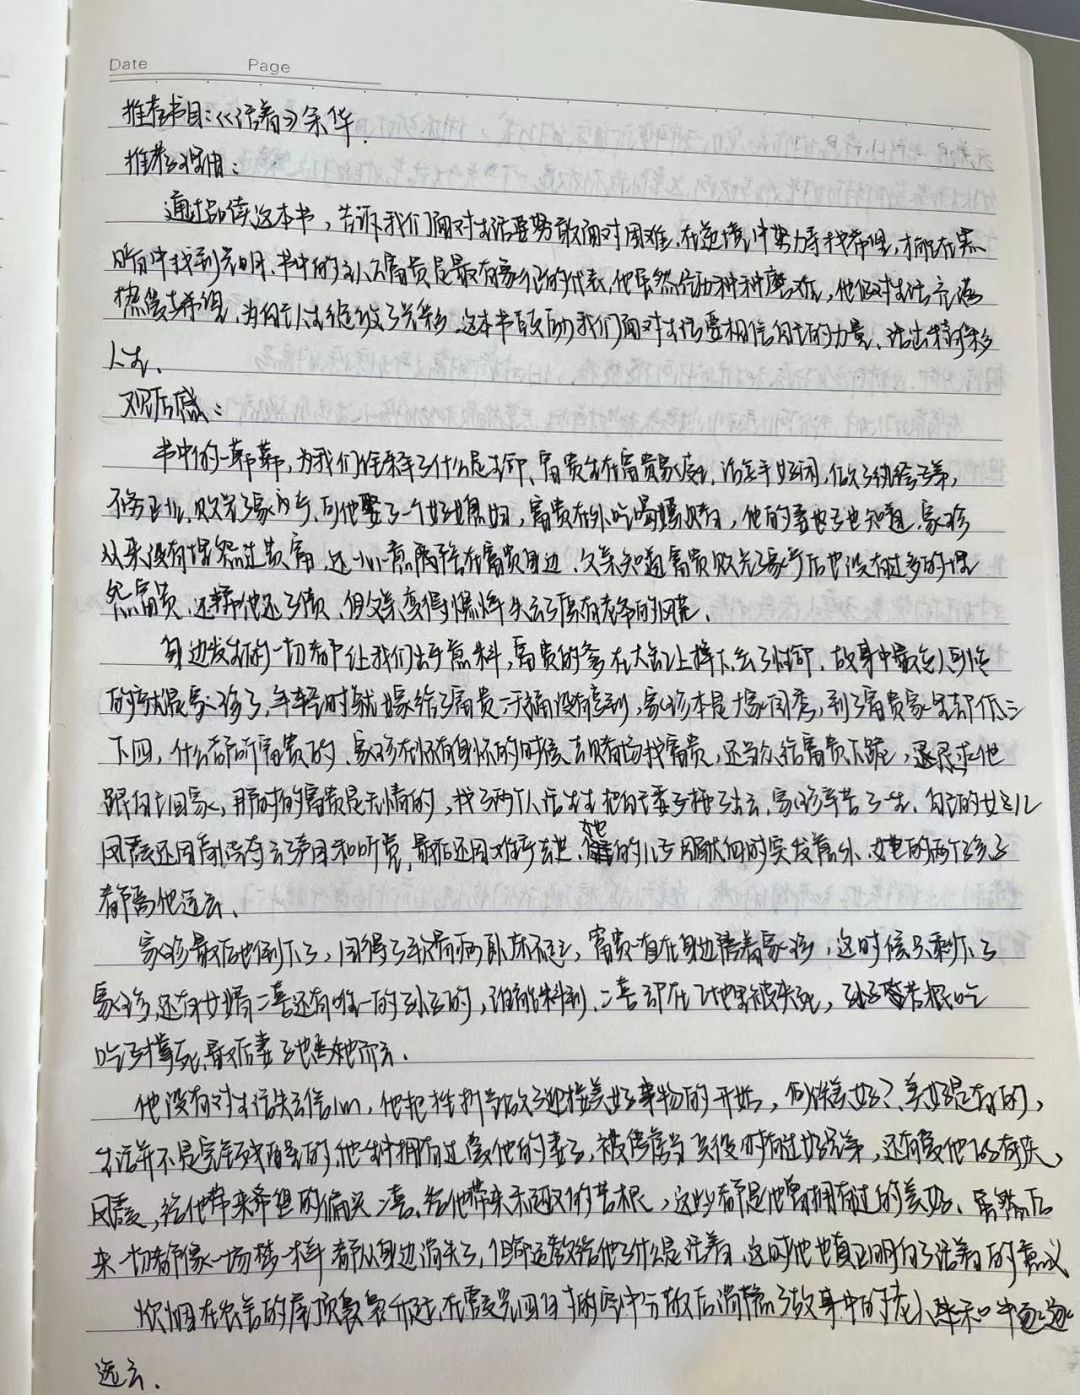 Date Page
推荐书目:《活着》余华.
推荐理由:
通过品读这本书,告诉我们面对生活要勇敢面对困难,在逆境中努力寻找希望,才能在黑
暗中找到光明.书中的主人公富贵是最有象征的代表,他虽然经历种种磨难,他仍对生活充满
热爱与希望,为自己人生绽放了光彩.这本书鼓励我们面对生活要相信自己的力量、活出精彩
人生、
观后感:
书中的一幕幕,为我们诠释了什么是命、富贵生在富贵家庭,游手好闲,做了纨绔子弟,
不务正业,败光了家产、可他娶了一个好媳妇,富贵在外吃喝嫖赌,他的妻子也知道,家珍
从来没有埋怨过富贵,还一心一意陪伴在富贵身边、父亲知道富贵败光了家产后也没有过多的埋
怨富贵、还帮他还了债、但父亲变得憔悴失去了原有老爷的风范、
身边发生的一切都让我们出乎意料,富贵的爹在大缸上摔下丢了性命、故事中最令人可怜
的就是家珍了,年轻时就嫁给了富贵一天福没享到,家珍本是大家闺秀,到了富贵家里却低三
下四,什么都听富贵的、家珍在怀有身孕的时候去赌场找富贵,还当众给富贵下跪,恳求他
跟自己回家,那时的富贵是无情的,找了两个人活生生把自己妻子拖了出去,家珍辛苦了一生、自己的女儿
凤霞还因高烧夺去了声音和听觉,最后还因难产去世、她的儿子因献血时突发意外、她的两个孩子
都离他远去、
家珍最后也倒下了,因得了软骨病卧床不起,富贵一直在身边陪着家珍,这时候只剩下了
家珍,还有女婿二喜还有唯一的孙子的,谁能料到、二喜却在工地里被夹死,孙子苦根吃
吃豆撑死最后妻子也离他而去、
他没有对生活失去信心,他把挫折当做了迎接美好事物的开始,何谓美好?美好是有的,
生活并不是完全残酷的,他一生中拥有过爱他的妻子,被俘虏当兵役时有过好兄弟,还有爱他的有庆、
凤霞,给他带来希望的偏头二喜、给他带来乐趣的苦根,这些都是他曾拥有过的美好、虽然后
来一切都像一场梦一样都从身边消失了,但命运教给他了什么是活着,这时他也真正明白了活着的意义
炊烟在农舍的屋顶袅袅升起,在霞光四射的空中分散后消隐了故事中的老人牵和牛逐渐
远去.